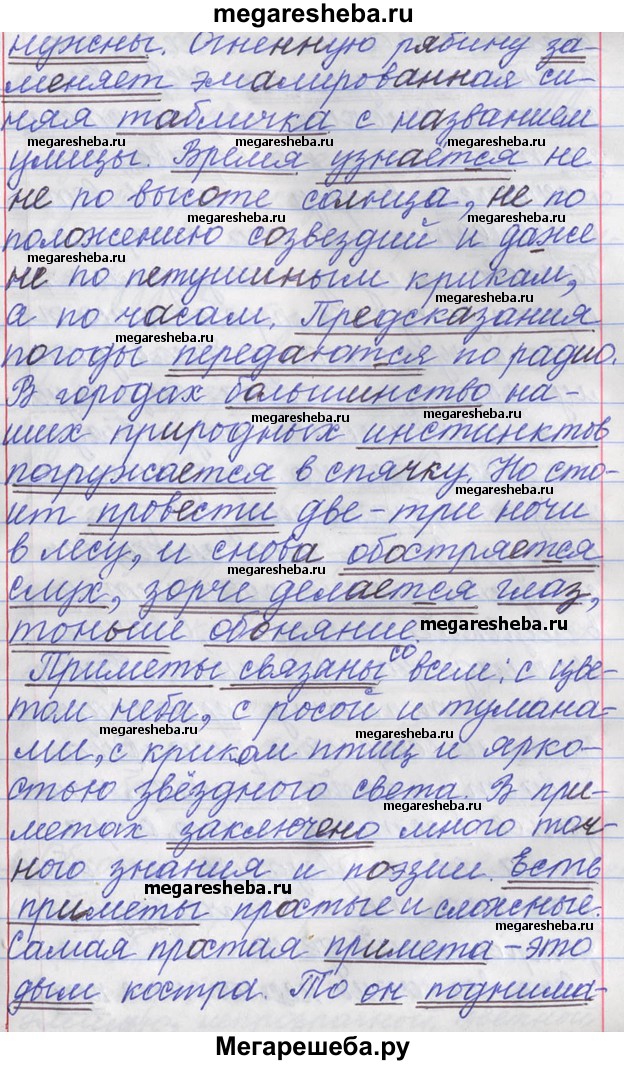 megaresheba.ru
нужны. Огненную рябину за-
меняет эмалированная си-
няя табличка с названием
megaresheba.ru megaresheba.ru
улицы. Время узнаётся не
megaresheba.ru
не по высоте солнца, не по
megaresheba.ru
положению созвездий и даже
megaresheba.ru
не по петушиным крикам,
megaresheba.ru
а по часам. Предсказания
megaresheba.ru
погоды передаются по радио.
megaresheba.ru
В городах большинство на-
megaresheba.ru megaresheba.ru
ших природных инстинктов
погружается в спячку. Но сто-
megaresheba.ru
ит провести две-три ночи
megaresheba.ru
в лесу, и снова обостряется
megaresheba.ru
слух, зорче делается глаз,
тоньше обоняние.
megaresheba.ru
Приметы связаны со всем: с цве-
megaresheba.ru
том неба, с росой и тумана-
megaresheba.ru megaresheba.ru
ми, с криком птиц и ярко-
стью звёздного света. В при-
megaresheba.ru
метах заключено много точ-
ного знания и поэзии. Есть
megaresheba.ru
приметы простые и сложные.
megaresheba.ru
Самая простая примета – это
дым костра. То он поднима-
megaresheba.ru
Мегарешеба.ру